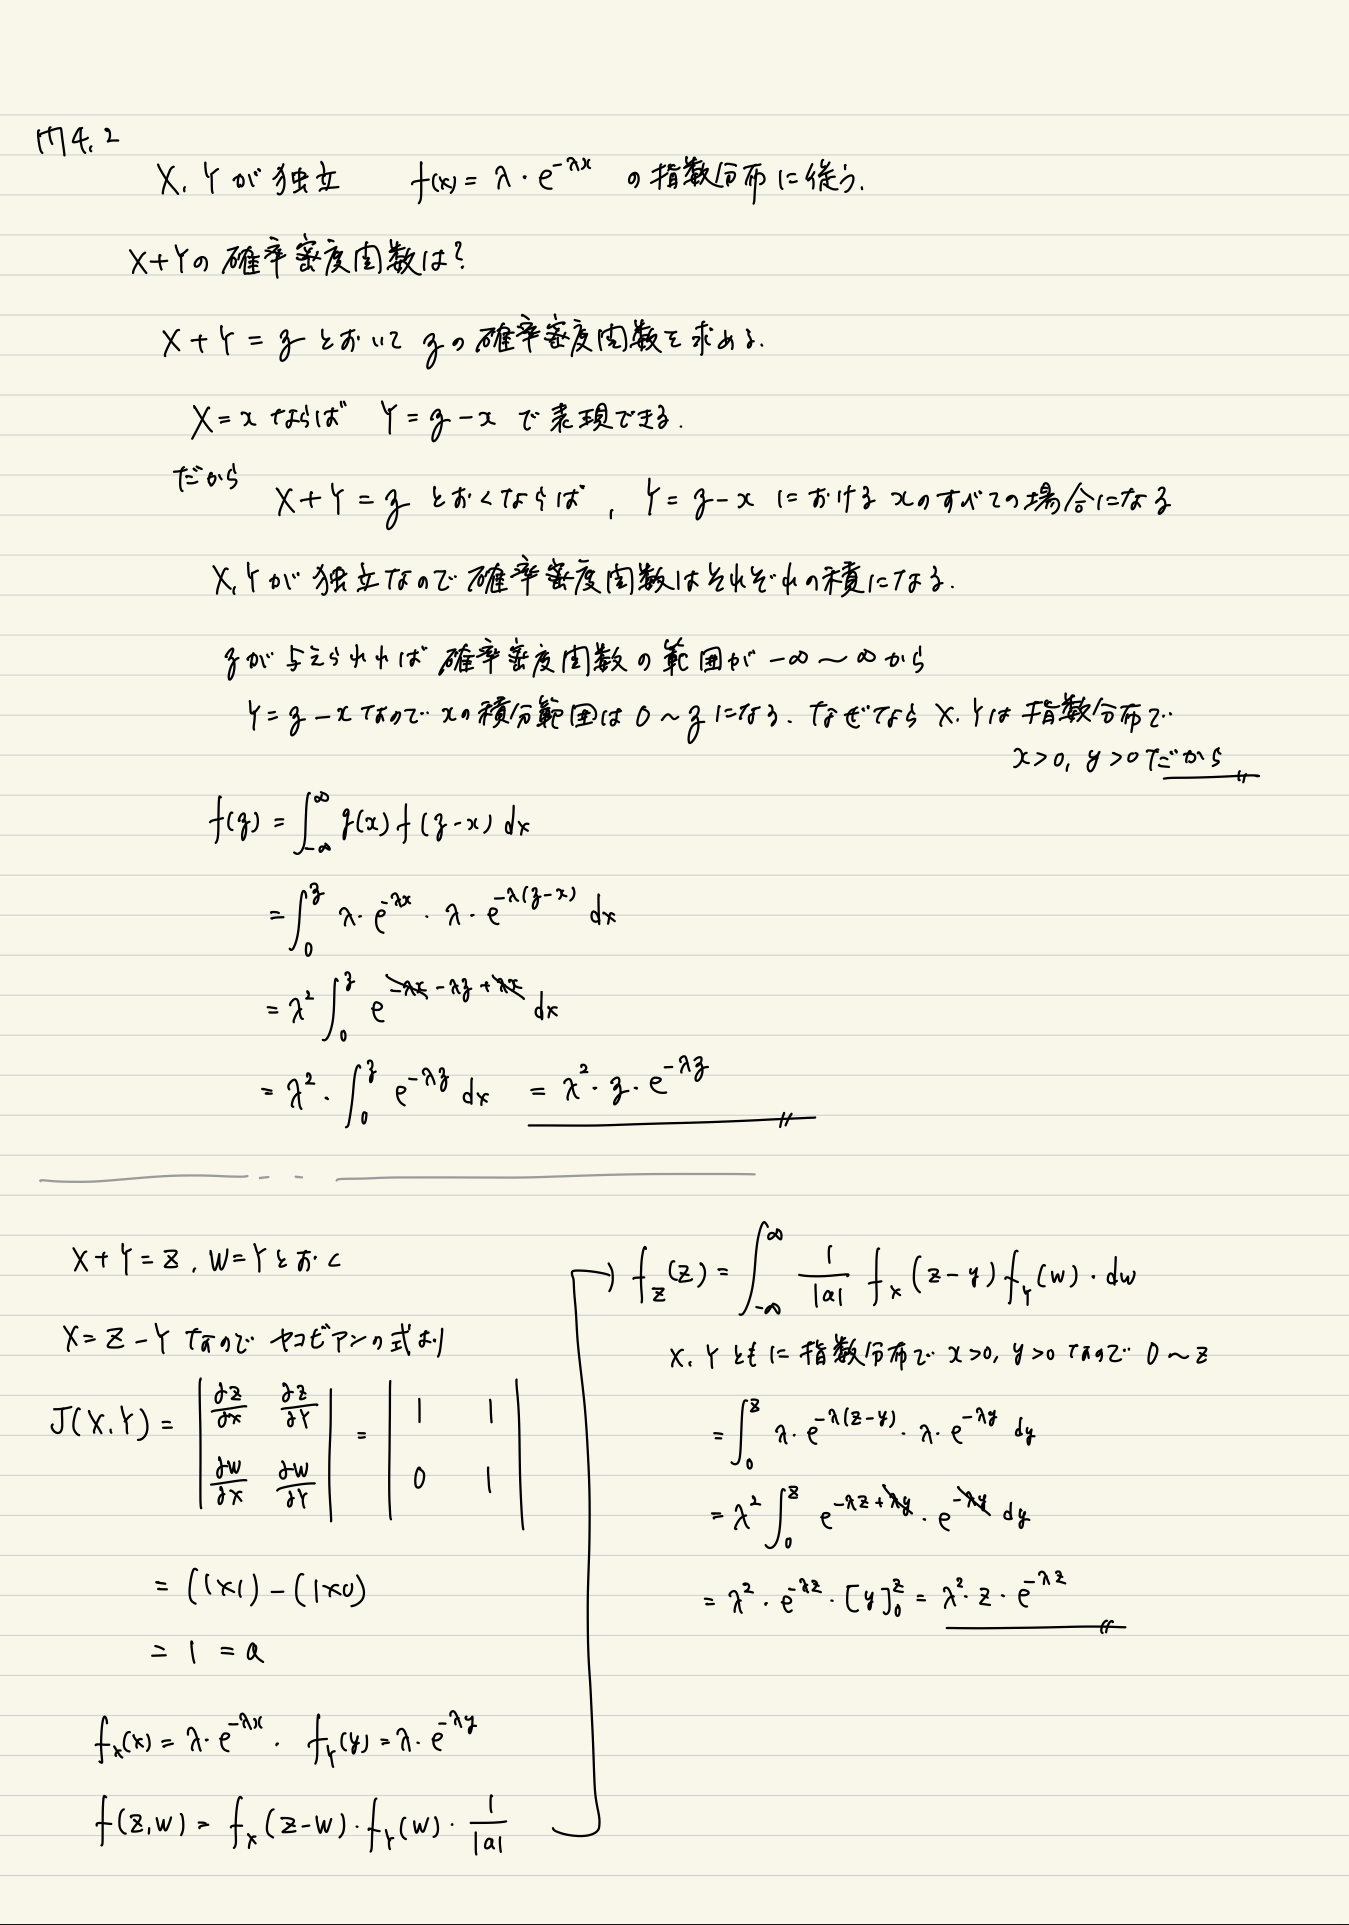 問4.2
X, Yが独立 f(x) = λ・e^{-λx} の指数分布に従う.
X+Yの確率密度関数は?
X+Y = z とおいて zの確率密度関数を求める.
X=x ならば Y=z-x で表現できる.
だから X+Y=z とおくならば, Y=z-x における xのすべての場合になる
X,Yが独立なので確率密度関数はそれぞれの積になる.
zが与えられれば確率密度関数の範囲が -∞~∞から
Y=z-xなのでxの積分範囲は0~zになる. なぜなら X,Yは指数分布で
x>0, y>0だから
f(z) = ∫_{-∞}^{∞} g(x) f(z-x) dx
= ∫_0^z λ・e^{-λx}・λ・e^{-λ(z-x)} dx
= λ^2 ∫_0^z e^{-λx-λz+λx} dx
= λ^2・∫_0^z e^{-λz} dx = λ^2・z・e^{-λz}
X+Y=Z, W=Yとおく
X=Z-Yなので ヤコビアンの式より
J(X,Y) = |∂Z/∂X ∂Z/∂Y| = |1 1|
|∂W/∂X ∂W/∂Y| |0 1|
= (1×1)-(1×0)
= 1 = a
f_X(x) = λ・e^{-λx}, f_Y(y) = λ・e^{-λy}
f(Z,W) = f_X(Z-W)・f_Y(W)・1/|a|
f_Z(Z) = ∫_{-∞}^{∞} 1/|a| f_X(Z-y) f_Y(W)・dw
X,Yともに指数分布で x>0, y>0なので 0~Z
= ∫_0^Z λ・e^{-λ(Z-y)}・λ・e^{-λy} dy
= λ^2 ∫_0^Z e^{-λZ+λy}・e^{-λy} dy
= λ^2・e^{-λZ}・[y]_0^Z = λ^2・Z・e^{-λZ}